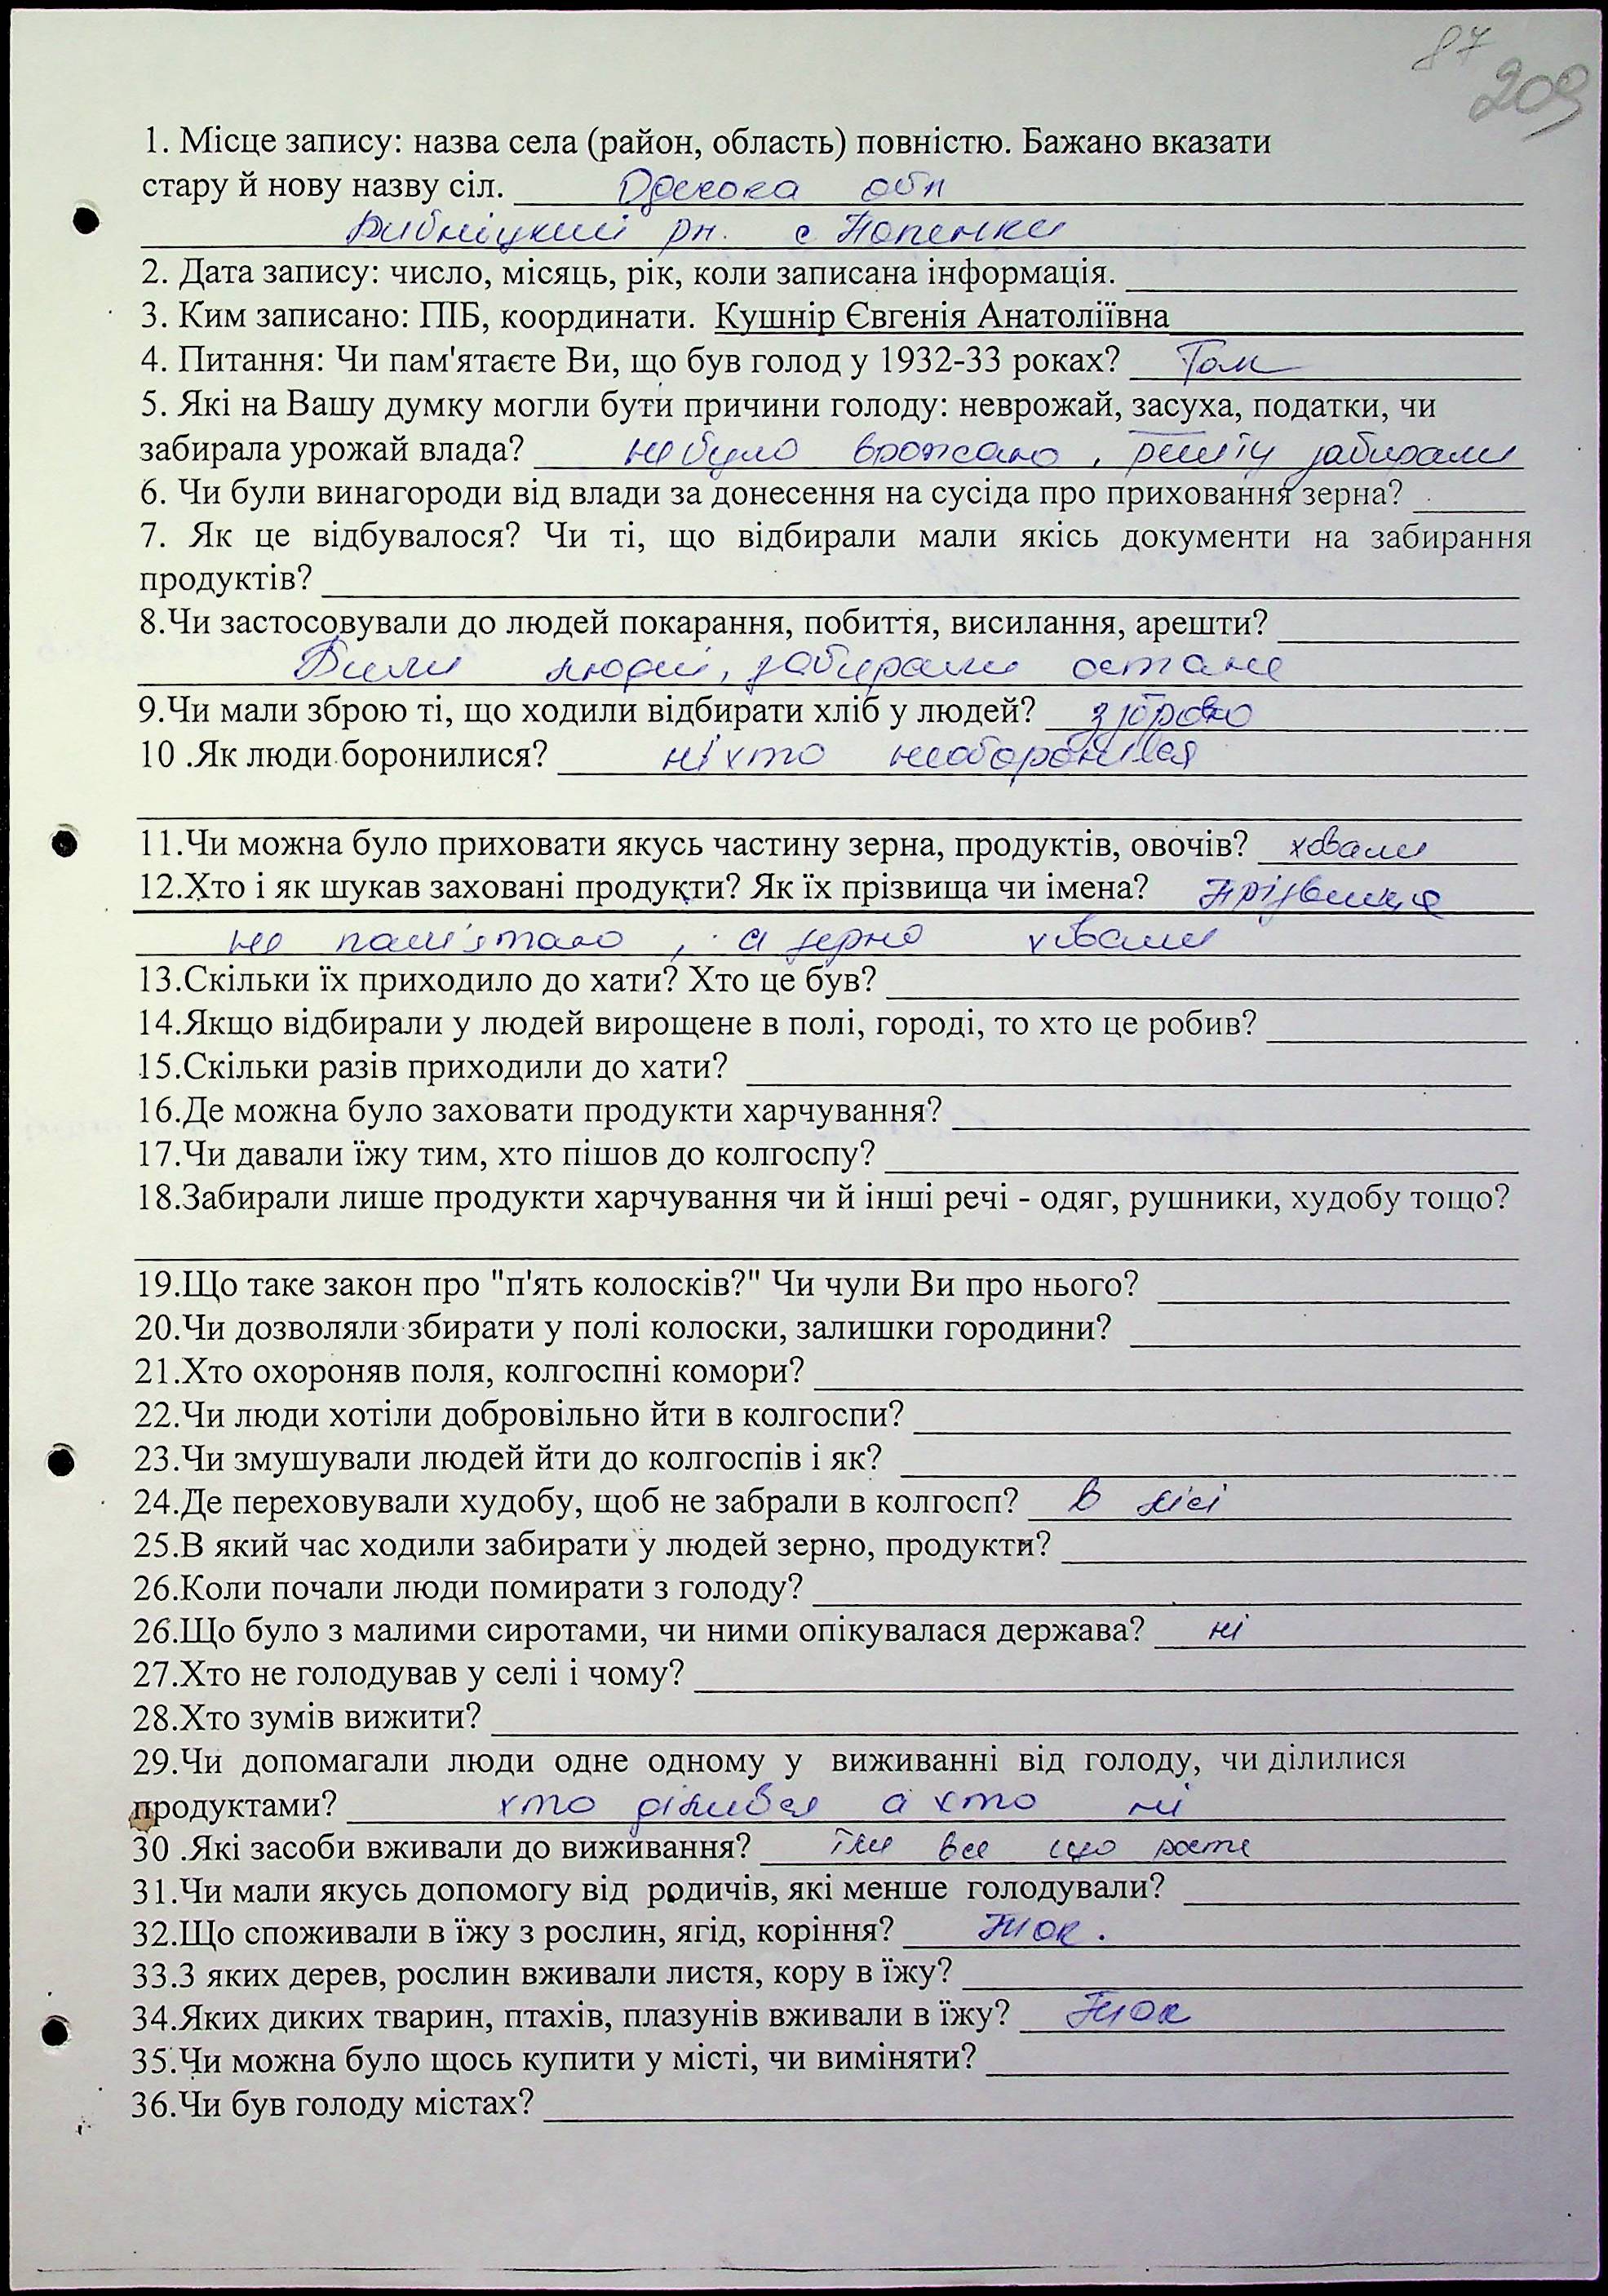 87
209
1. Місце запису: назва села (район, область) повністю. Бажано вказати
стару й нову назву сіл. Одеська обл
Рибніцкий рн. с Попенки
2. Дата запису: число, місяць, рік, коли записана інформація.
3. Ким записано: ПІБ, координати. Кушнір Євгенія Анатоліївна
4. Питання: Чи пам'ятаєте Ви, що був голод у 1932-33 роках? Так
5. Які на Вашу думку могли бути причини голоду: неврожай, засуха, податки, чи
забирала урожай влада? не було врожаю, решту забирали
6. Чи були винагороди від влади за донесення на сусіда про приховання зерна?
7. Як це відбувалося? Чи ті, що відбирали мали якісь документи на забирання
продуктів?
8.Чи застосовували до людей покарання, побиття, висилання, арешти?
Били людей, забирали останє
9.Чи мали зброю ті, що ходили відбирати хліб у людей? зброю
10 .Як люди боронилися? ніхто необоронився
11.Чи можна було приховати якусь частину зерна, продуктів, овочів? ховали
12.Хто і як шукав заховані продукти? Як їх прізвища чи імена? прізвища
не пам'ятаю, а зерно ховали
13.Скільки їх приходило до хати? Хто це був?
14.Якщо відбирали у людей вирощене в полі, городі, то хто це робив?
15.Скільки разів приходили до хати?
16.Де можна було заховати продукти харчування?
17.Чи давали їжу тим, хто пішов до колгоспу?
18.Забирали лише продукти харчування чи й інші речі - одяг, рушники, худобу тощо?
19.Що таке закон про "п'ять колосків?" Чи чули Ви про нього?
20.Чи дозволяли збирати у полі колоски, залишки городини?
21.Хто охороняв поля, колгоспні комори?
22.Чи люди хотіли добровільно йти в колгоспи?
23.Чи змушували людей йти до колгоспів і як?
24.Де переховували худобу, щоб не забрали в колгосп? в лісі
25.В який час ходили забирати у людей зерно, продукти?
26.Коли почали люди помирати з голоду?
26.Що було з малими сиротами, чи ними опікувалася держава? ні
27.Хто не голодував у селі і чому?
28.Хто зумів вижити?
29.Чи допомагали люди одне одному у виживанні від голоду, чи ділилися
продуктами? хто ділився а хто ні
30 .Які засоби вживали до виживання? їли все що росте
31.Чи мали якусь допомогу від родичів, які менше голодували?
32.Що споживали в їжу з рослин, ягід, коріння?
33.З яких дерев, рослин вживали листя, кору в їжу?
34.Яких диких тварин, птахів, плазунів вживали в їжу?
35.Чи можна було щось купити у місті, чи виміняти?
36.Чи був голоду містах?